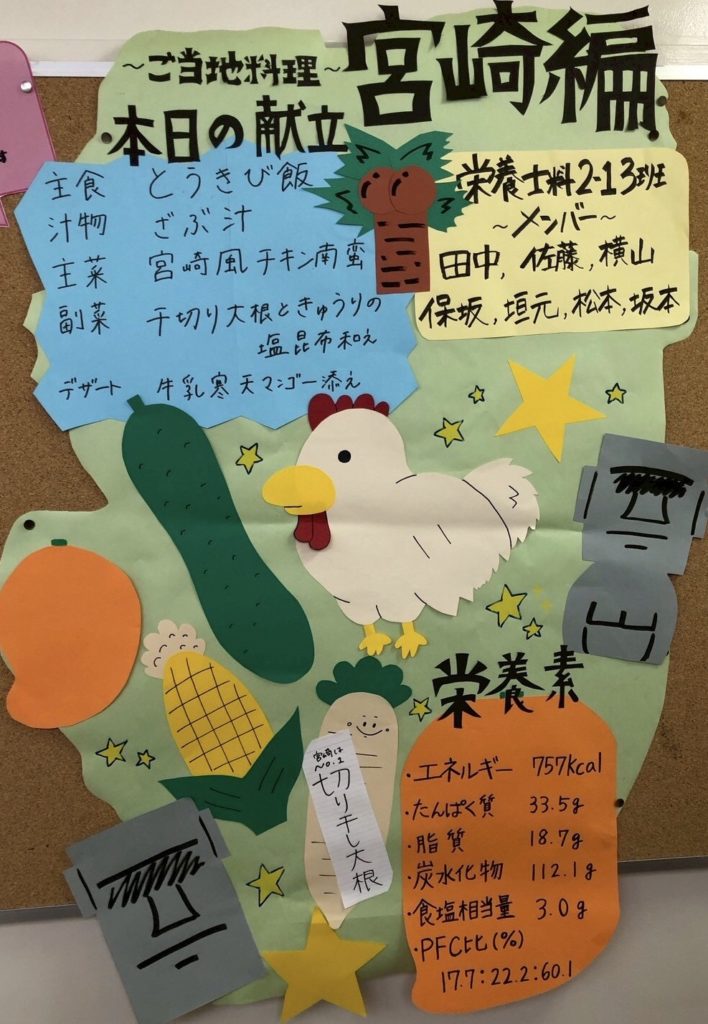 ~ご当地料理~
宮崎編
本日の献立
主食 とうきび飯
汁物 ざぶ汁
主菜 宮崎風チキン南蛮
副菜 千切り大根ときゅうりの
塩昆布和え
デザート 牛乳寒天マンゴー添え
栄養士科2-13班
~メンバー~
田中, 佐藤, 横山
保坂, 垣元, 松本, 坂本
宮崎は
No.1
切り干し大根
栄養素
・エネルギー 757kcal
・たんぱく質 33.5g
・脂質 18.7g
・炭水化物 112.1g
・食塩相当量 3.0g
・PFC比(%)
17.7:22.2:60.1